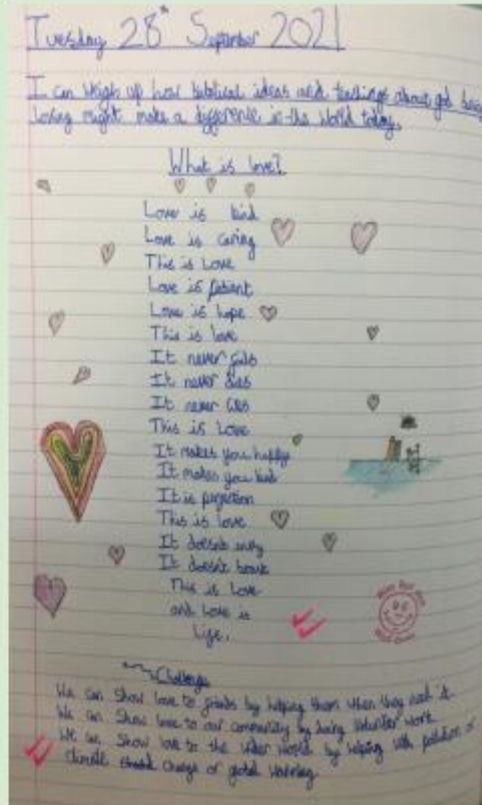 Tuesday 28th September 2021
I can weigh up how biblical ideas and teachings about god being
loving might make a difference in the world today.
What is love?
Love is kind
Love is caring
This is Love
Love is patient
Love is hope
This is love
It never fails
It never dies
It never
This is Love
It makes you happy
It makes you kind
It is perfection
This is love
It doesn't envy
It doesn't boast
This is Love
and Love is
Life.
Challenge
We can show love to by helping them when they need it
We can show love to our community by doing volunteer work
We can show love to the wider world by helping with pollution or
climate change or global warming